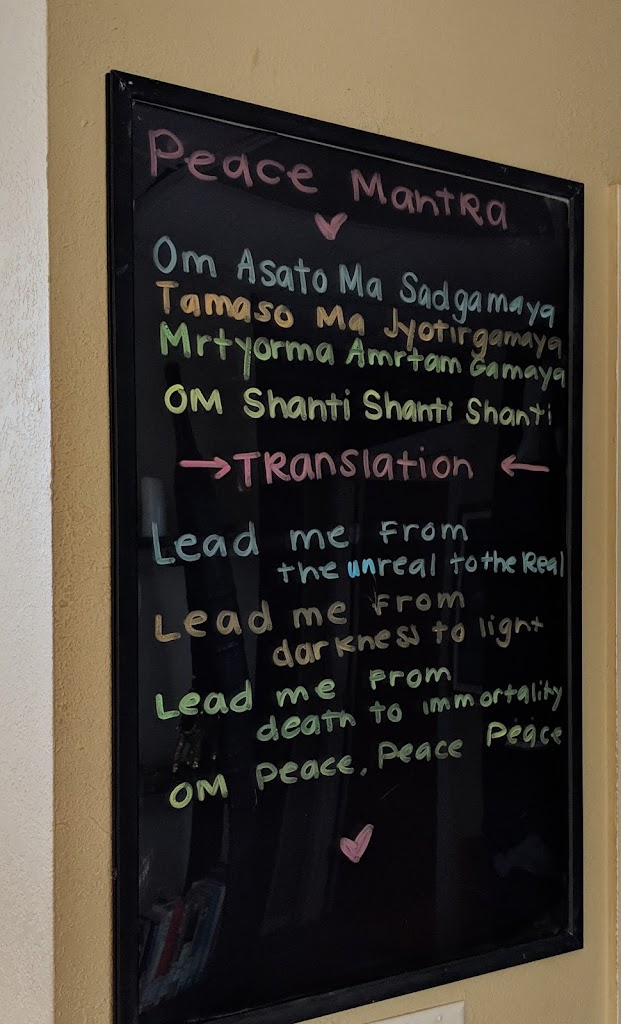 Peace Mantra
Om Asato Ma Sadgamaya
Tamaso Ma Jyotirgamaya
Mrtyorma Amrtam Gamaya
OM Shanti Shanti Shanti
→ TRanslation ←
Lead me From
the unreal to the Real
Lead me From
darkness to light
Lead me From
death to immortality
OM Peace, Peace Peace